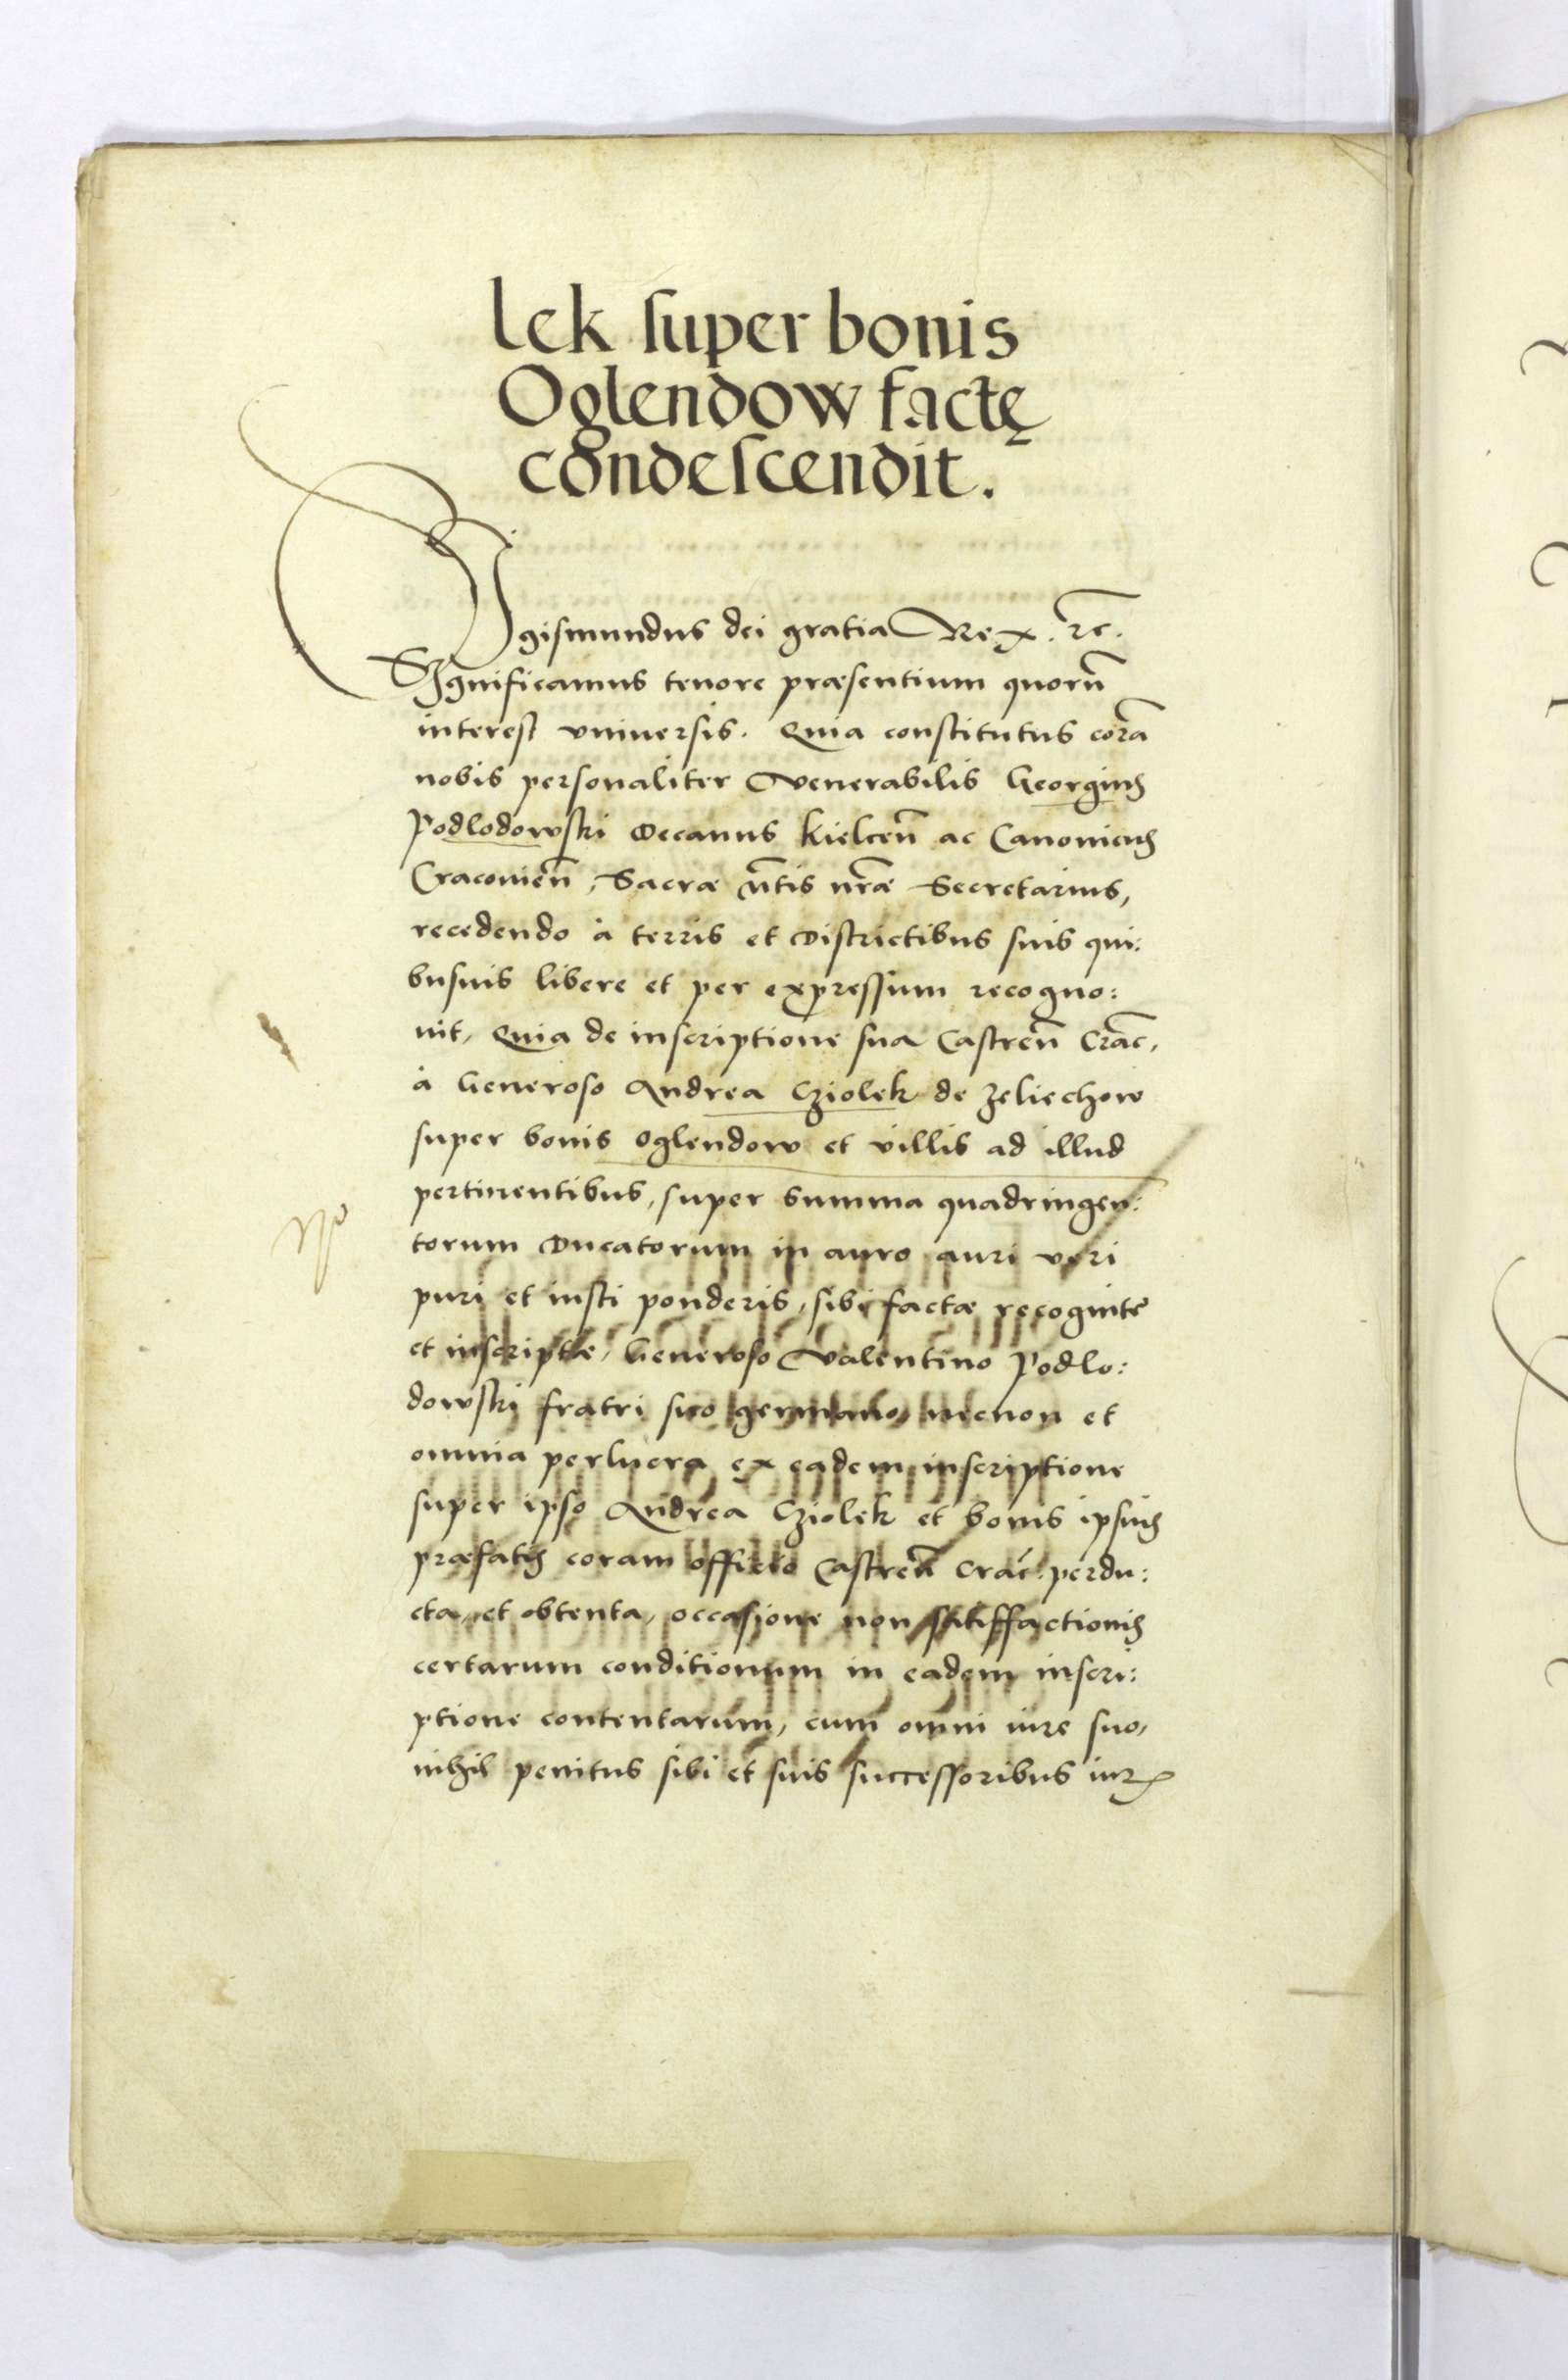 lek super bonis
Oglendow factę
condescendit.
Sigismundus dei gratia Rex. etc̄.
Significamus tenore præsentium quorū
interest vniuersis. Quia constitutus corā
nobis personaliter Venerabilis Georgius
Podlodowski Decanus kielceñ ac Canonicus
Cracouieñ, Sacræ M̃tis nr̃æ Secretarius,
recedendo à terris et Districtibus suis qui:
busuis libere et per expressum recogno:
uit, Quia de inscriptione sua Castreñ Crac̃,
à Generoso Andrea Cziolek de Zeliechow
super bonis Oglendow et villis ad illud
pertinentibus, super Summa quadringen:
torum Ducatorum in auro auri veri
puri et iusti ponderis, sibi factæ recognitę
et inscriptæ, Generoso Valentino Podlo:
dowski fratri suo germano, necnon et
omnia perlucra ex eadem inscriptione
super ipso Andrea Cziolek et bonis ipsius
præfatis coram officio Castreñ Crac̃. perdu:
cta, et obtenta, occasione non satisfactionis
certarum conditionum in eadem inscri:
ptione contentarum, cum omni iure suo,
nihil penitus sibi et suis successoribus iur̃